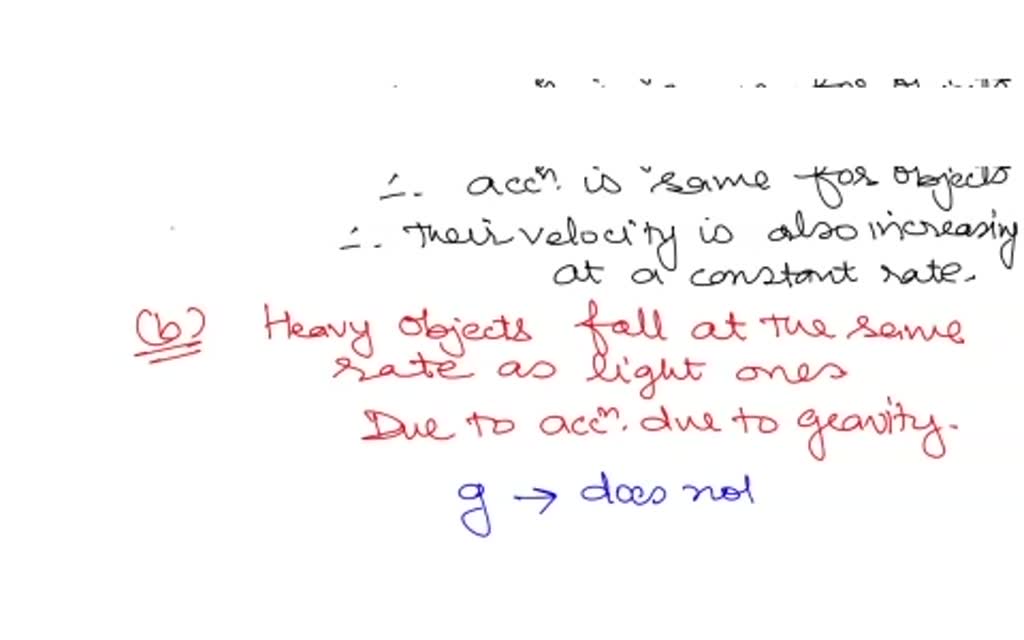 ∴ accⁿ. is same for objects
∴ Their velocity is also increasing
at a constant rate.
(b) Heavy objects fall at the same
rate as light ones
Due to accⁿ. due to geavity.
g → does not